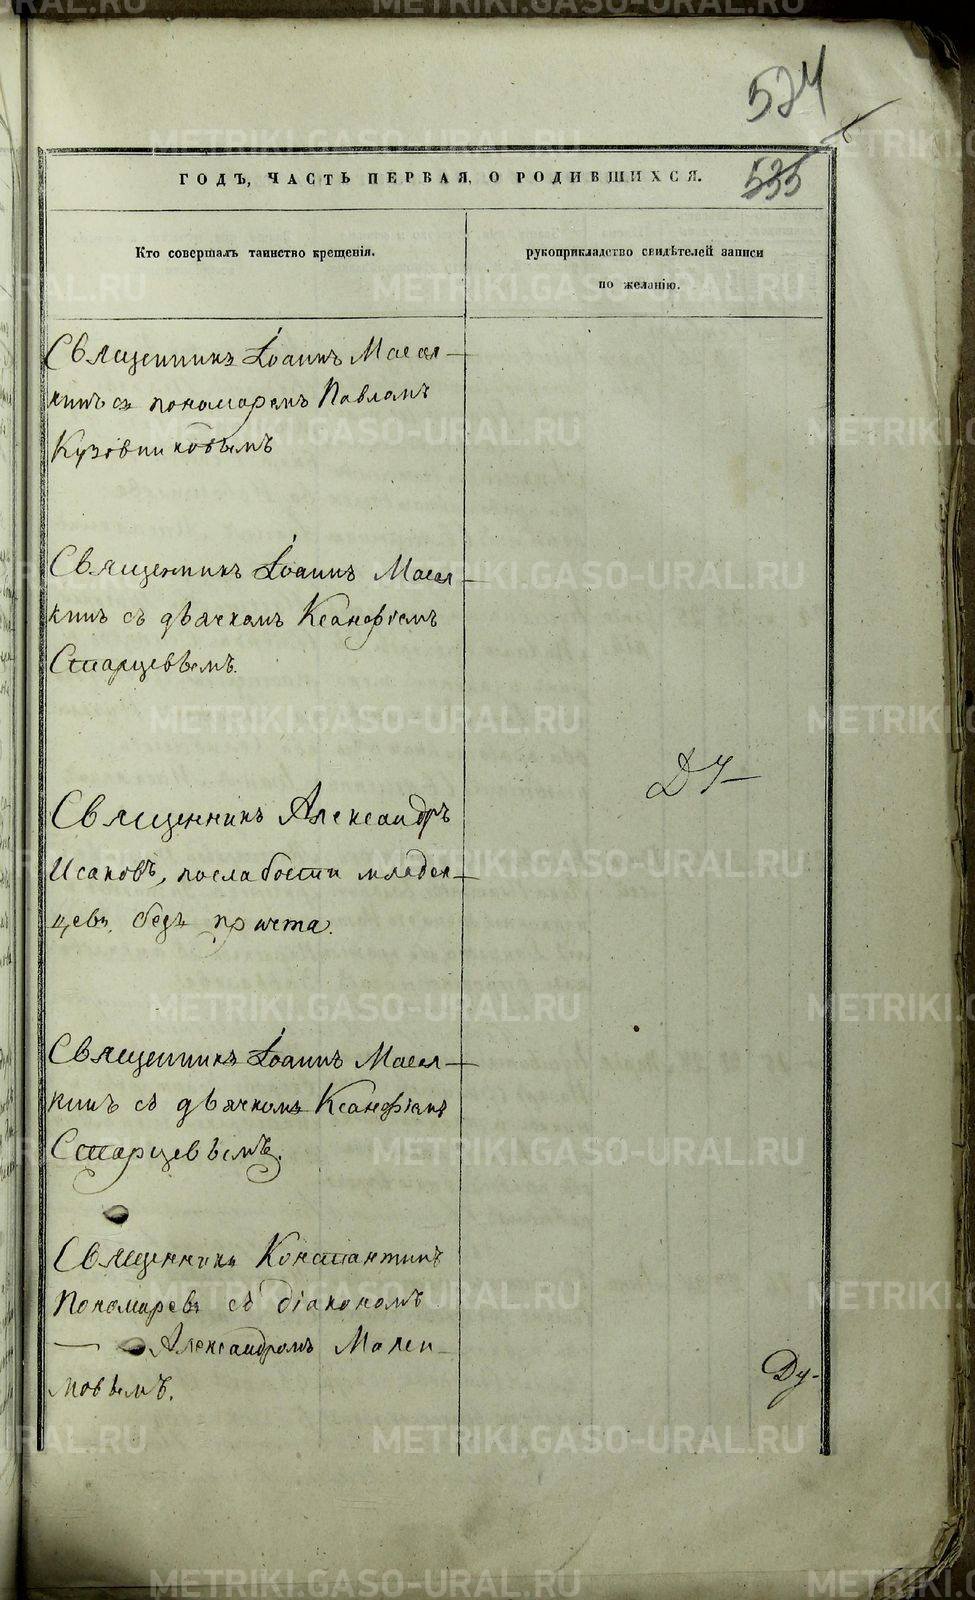 524
535
ГОДЪ, ЧАСТЬ ПЕРВАЯ, О РОДИВШИХСЯ.
Кто совершалъ таинство крещенія.
рукоприкладство свидѣтелей записи
по желанію.
Священникъ Іоаннъ Масал-
кинъ съ пономаремъ Павломъ
Кузовниковымъ
Священникъ Іоаннъ Масал-
кинъ съ дьячкомъ Ксанфіемъ
Старцевымъ.
Священникъ Александръ
Исаковъ, послабости младен-
цевъ, безъ причта.
Священникъ Іоаннъ Масал-
кинъ съ дьячкомъ Ксанфіемъ
Старцевымъ.
Священникъ Константинъ
Пономаревъ съ діакономъ
Александромъ Мален-
новымъ.
Ду-
METRIKI.GASO-URAL.RU